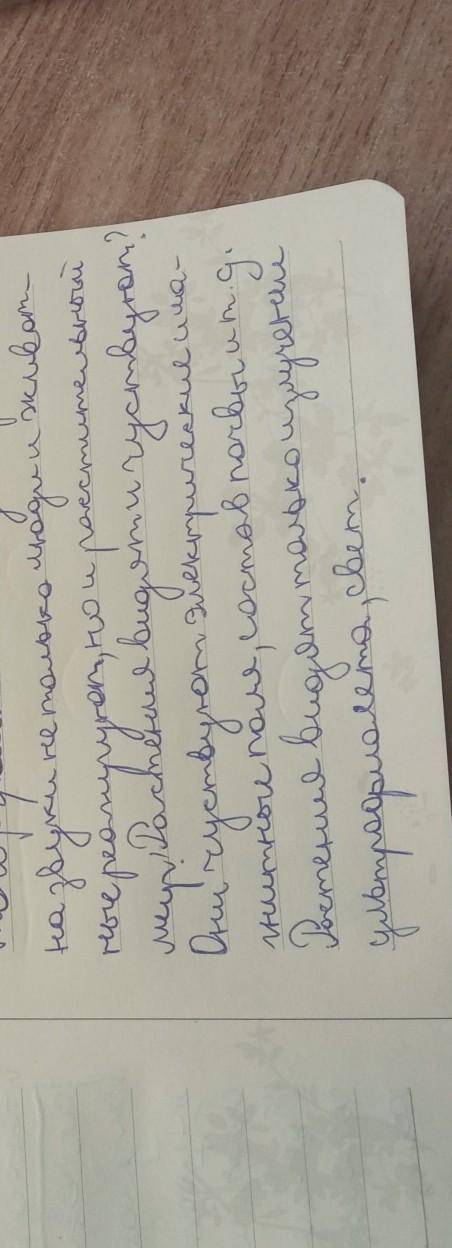 на звуки не только люди и живот-
ные реагируют, но и расстительный
мир! Растения видят и чуствуют?
Они чуствуют электрические и ма-
гнитные поля, состав почвы и т.д.
Растения видят только излучение
ультрафиолета, свет.